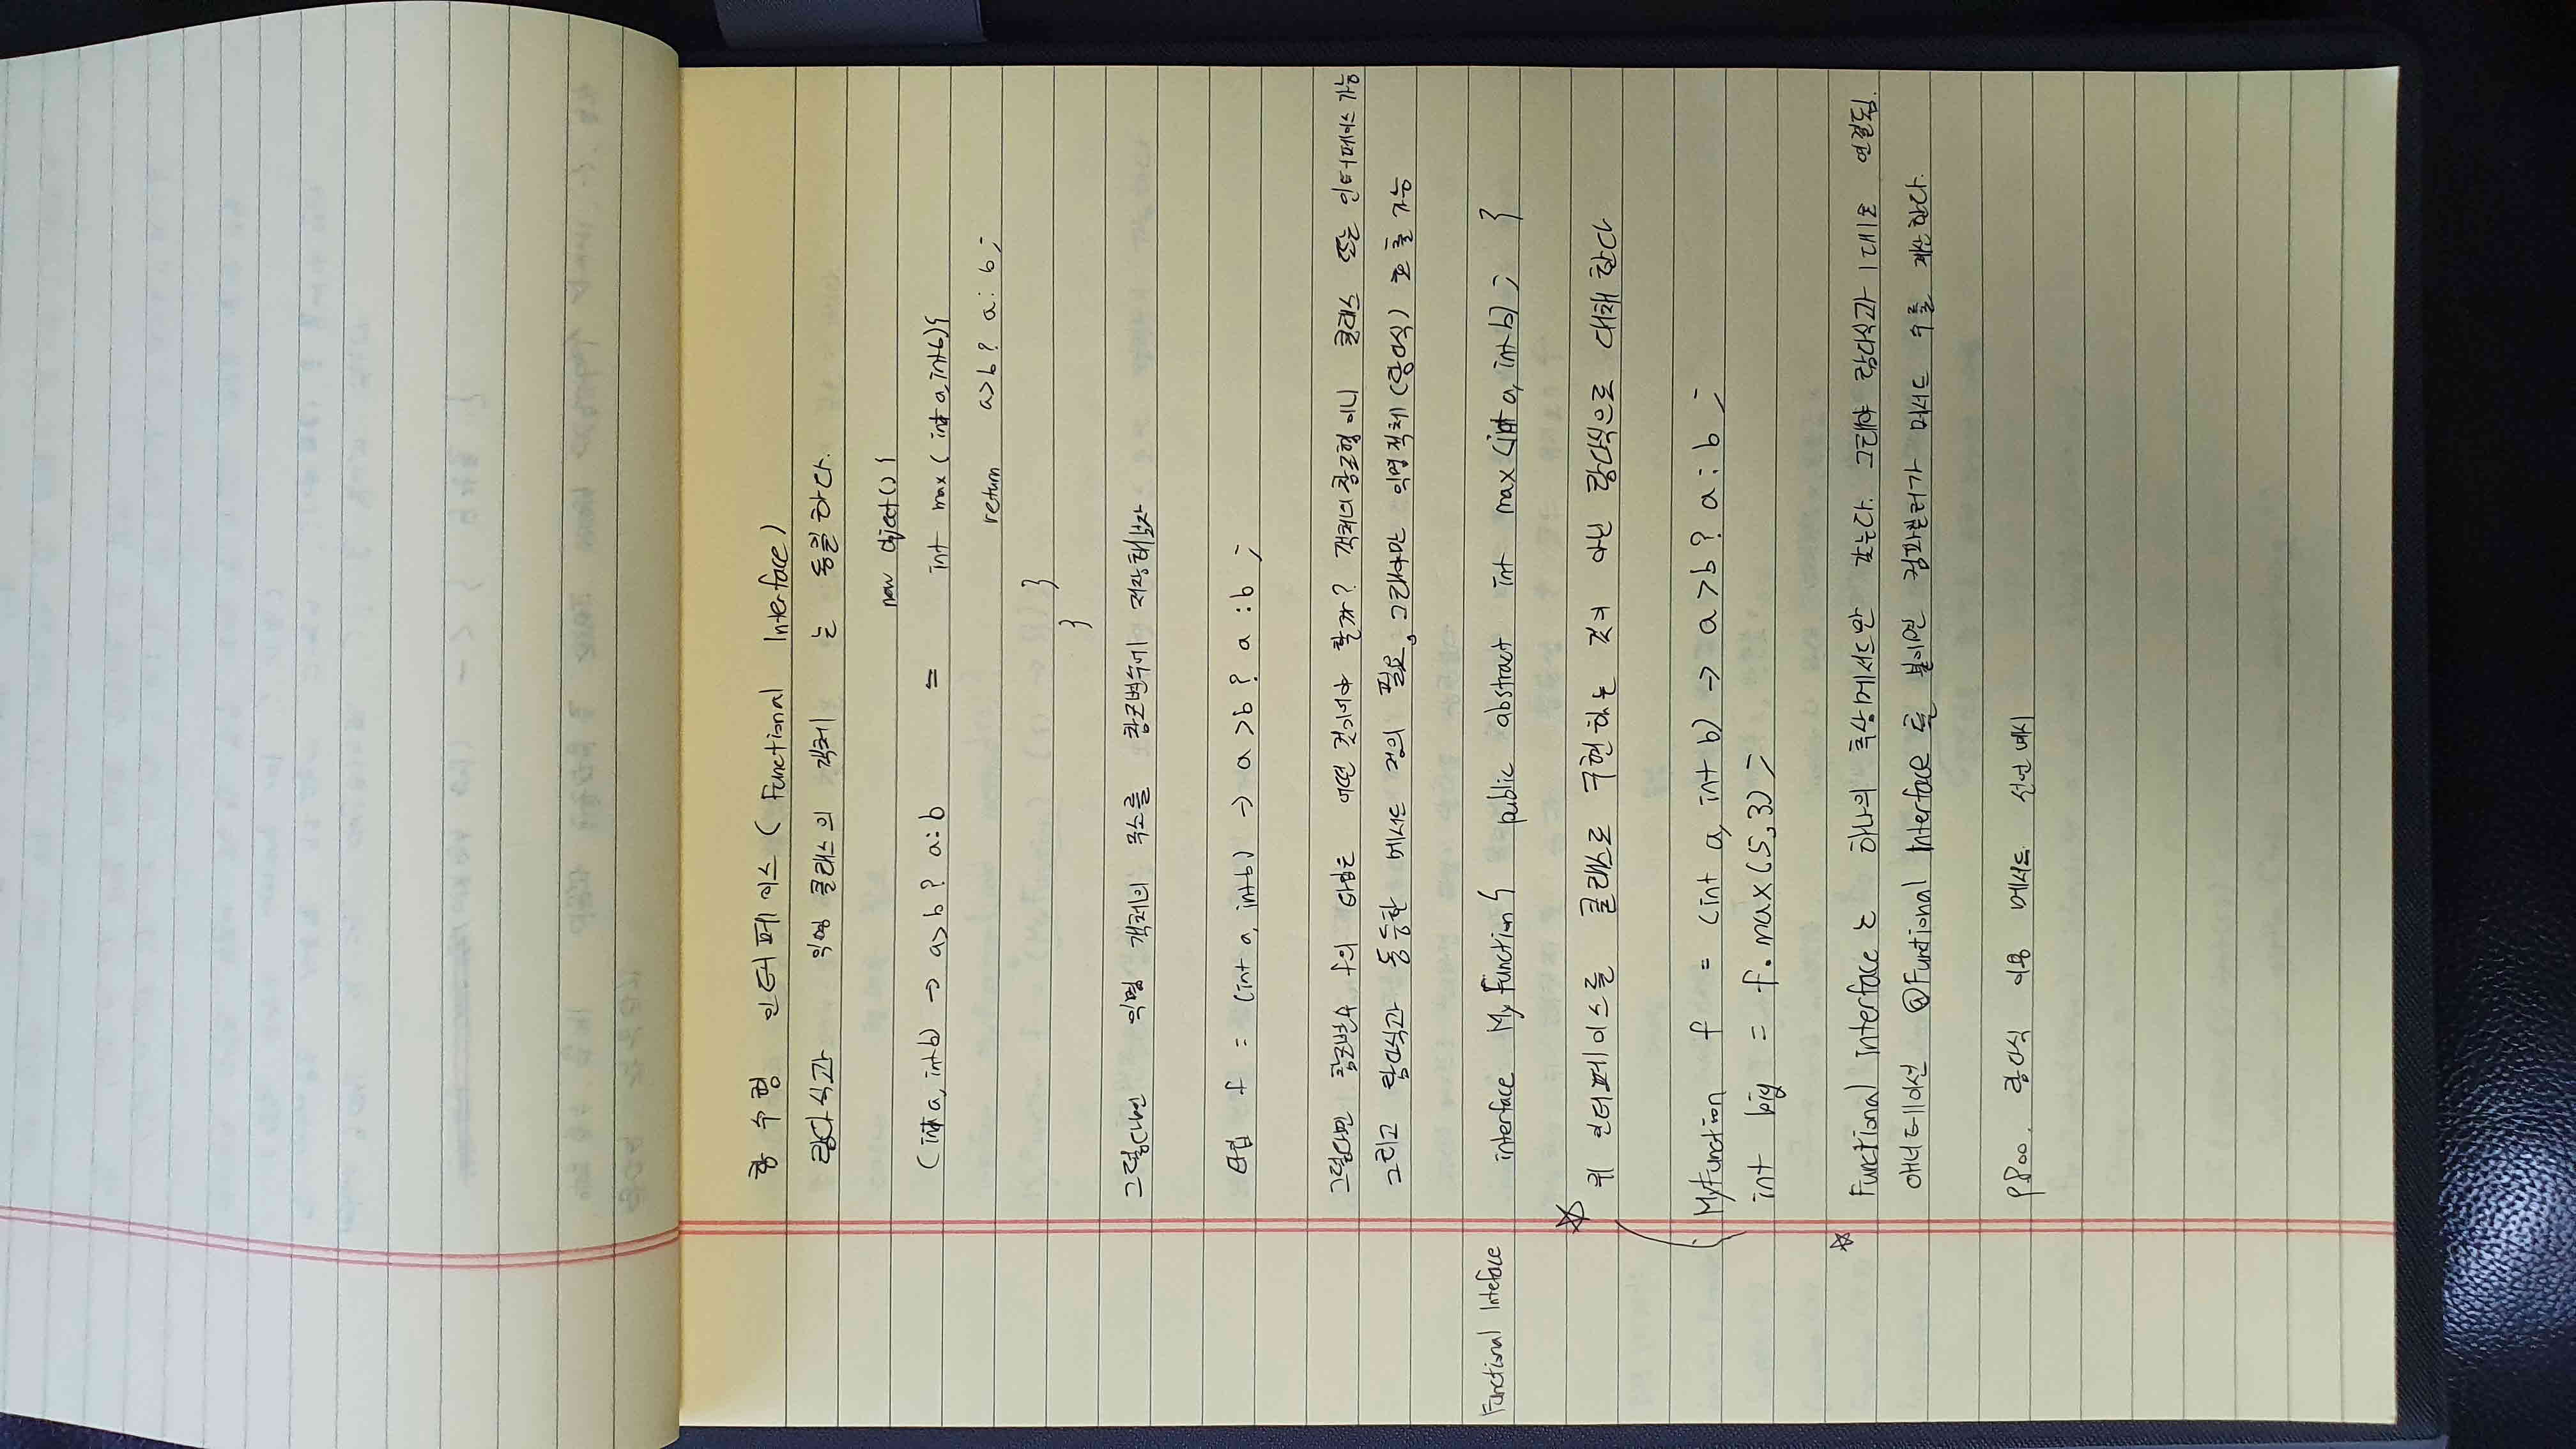 함수형 인터페이스 (Functional Interface)
람다식과 익명 클래스의 객체 는 동일하다.
new Object() {
(int a, int b) → a>b ? a:b = int max (int a, int b){
return a>b ? a : b ;
}
}
그렇다면 익명 객체의 주소를 참조변수에 저장해보자
타입 f = (int a, int b) → a >b ? a : b ;
그렇다면 참조변수 f의 타입은 어떤 것이어야 할까? 객체의 참조형이니 클래스 또는 인터페이스 가능
그리고 람다식과 동등한 메서드 정의 필요, 그래야만 익명객체 (람다식) 호출 가능
Functional Inteface interface My Function { public abstract int max (int a, int b) ; }
☆ 위 인터페이스를 클래스로 구현하는 것이 아닌 람다식으로 대채 한다
MyFunction f = (int a, int b) → a >b ? a : b ;
int big = f.max(5,3) ;
☆ Functional interface는 하나의 추상메서드만 갖는다. 그래야 람다식과 1대1로 연결됨.
애너테이션 @Funtional Interface 를 붙이면 컴파일러가 메서드 수를 계산한다.
p800. 람다식 이용 메서드 선언 예시